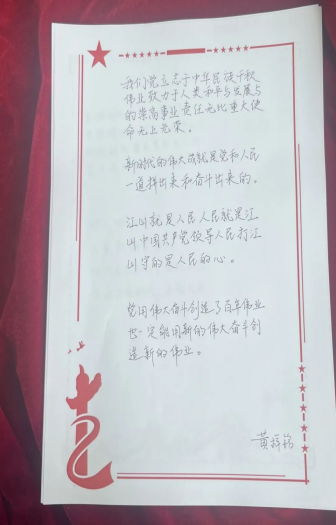 我们党立志于中华民族千秋
伟业致力于人类和平与发展
的崇高事业责任无比重大使
命无上光荣。
新时代的伟大成就是党和人民
一道拼出来和奋斗出来的。
江山就是人民人民就是江
山中国共产党领导人民打江
山守的是人民的心。
党用伟大奋斗创造了百年伟业
也一定能用新的伟大奋斗创
造新的伟业。
黄